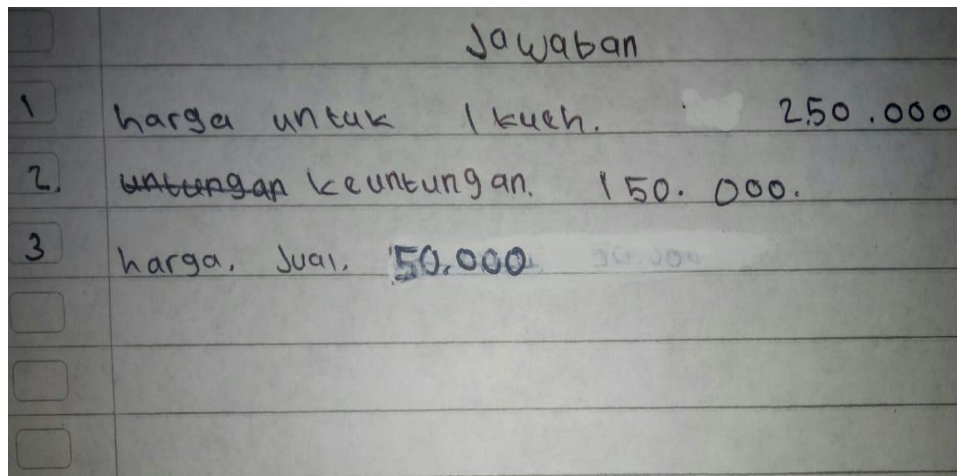 Jawaban
1 harga untuk 1 kueh. 250.000
2. untungan keuntungan. 150.000.
3 harga. Jual. 50.000